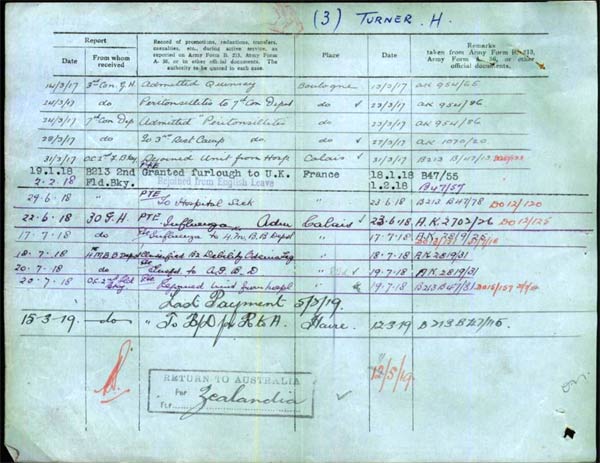 (3) TURNER. H.
Report
Record of promotions, reductions, transfers, casualties, etc., during active service, as reported on Army Form B. 213, Army Form A. 36, or in other official documents. The authority to be quoted in each case.
Remarks
taken from Army Form B. 213, Army Form A. 36, or other official documents.
Date From whom received Place Date
14/3/17 3rd Con. G.H Admitted Quinsy Boulogne 13/3/17 AK 954/85
24/3/17 do Peritonsillitis to 7th Con Depot do 23/3/17 AK 954/86
24/3/17 7th Con Dep Admitted "Peritonsillitis" do 23/3/17 AK 954/86
28/3/17 do To 3rd Rest Camp do. do 27/3/17 AK 1070/20
31/3/17 O.C 2nd F. Bky Rejoined Unit from Hosp Calais 31/3/17 B213
19.1.18 B213 2nd Fld.Bky. PTE Granted furlough to U.K. France 18.1.18 B47/55
2.2.18 Rejoined from English Leave 1.2.18 B47/57
29-6.18 " PTE To Hospital Sick " 23 6.18 B213 B47/78 DO12/120
22.6.18 30 G.H PTE Influenza Adm Calais 23.6.18 A.K.2702/26 DO12/125
17.7.18 do Influenza to H.M.B.B Depot " 17.7.18 A.K.2819/26
18.7.18 H.M.B.B Depot Classified B2 Debility " 18.7.18 AK 2819/31
20.7.18 do to A.G.B.D " 19.7.18 A.K.2819/31
20.7.18 O.C 2nd Fld Bky Rejoined Unit from hospl " 19.7.18 B213 B47/81
Last Payment 5/3/19.
15-3-19. do " To B/D for R to A. Havre. 12-3-19 B213 B47/115
12/5/19.
RETURN TO AUSTRALIA
Per Zealandia